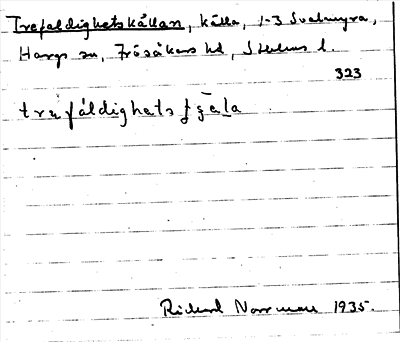 Trefaldighetskällan, källa, 1-3 Svalmyra,
Hargs sn, Frösåkers hd, Sthlms l.
323
trefáldighets ţşēla
Rickard Norrman 1935.